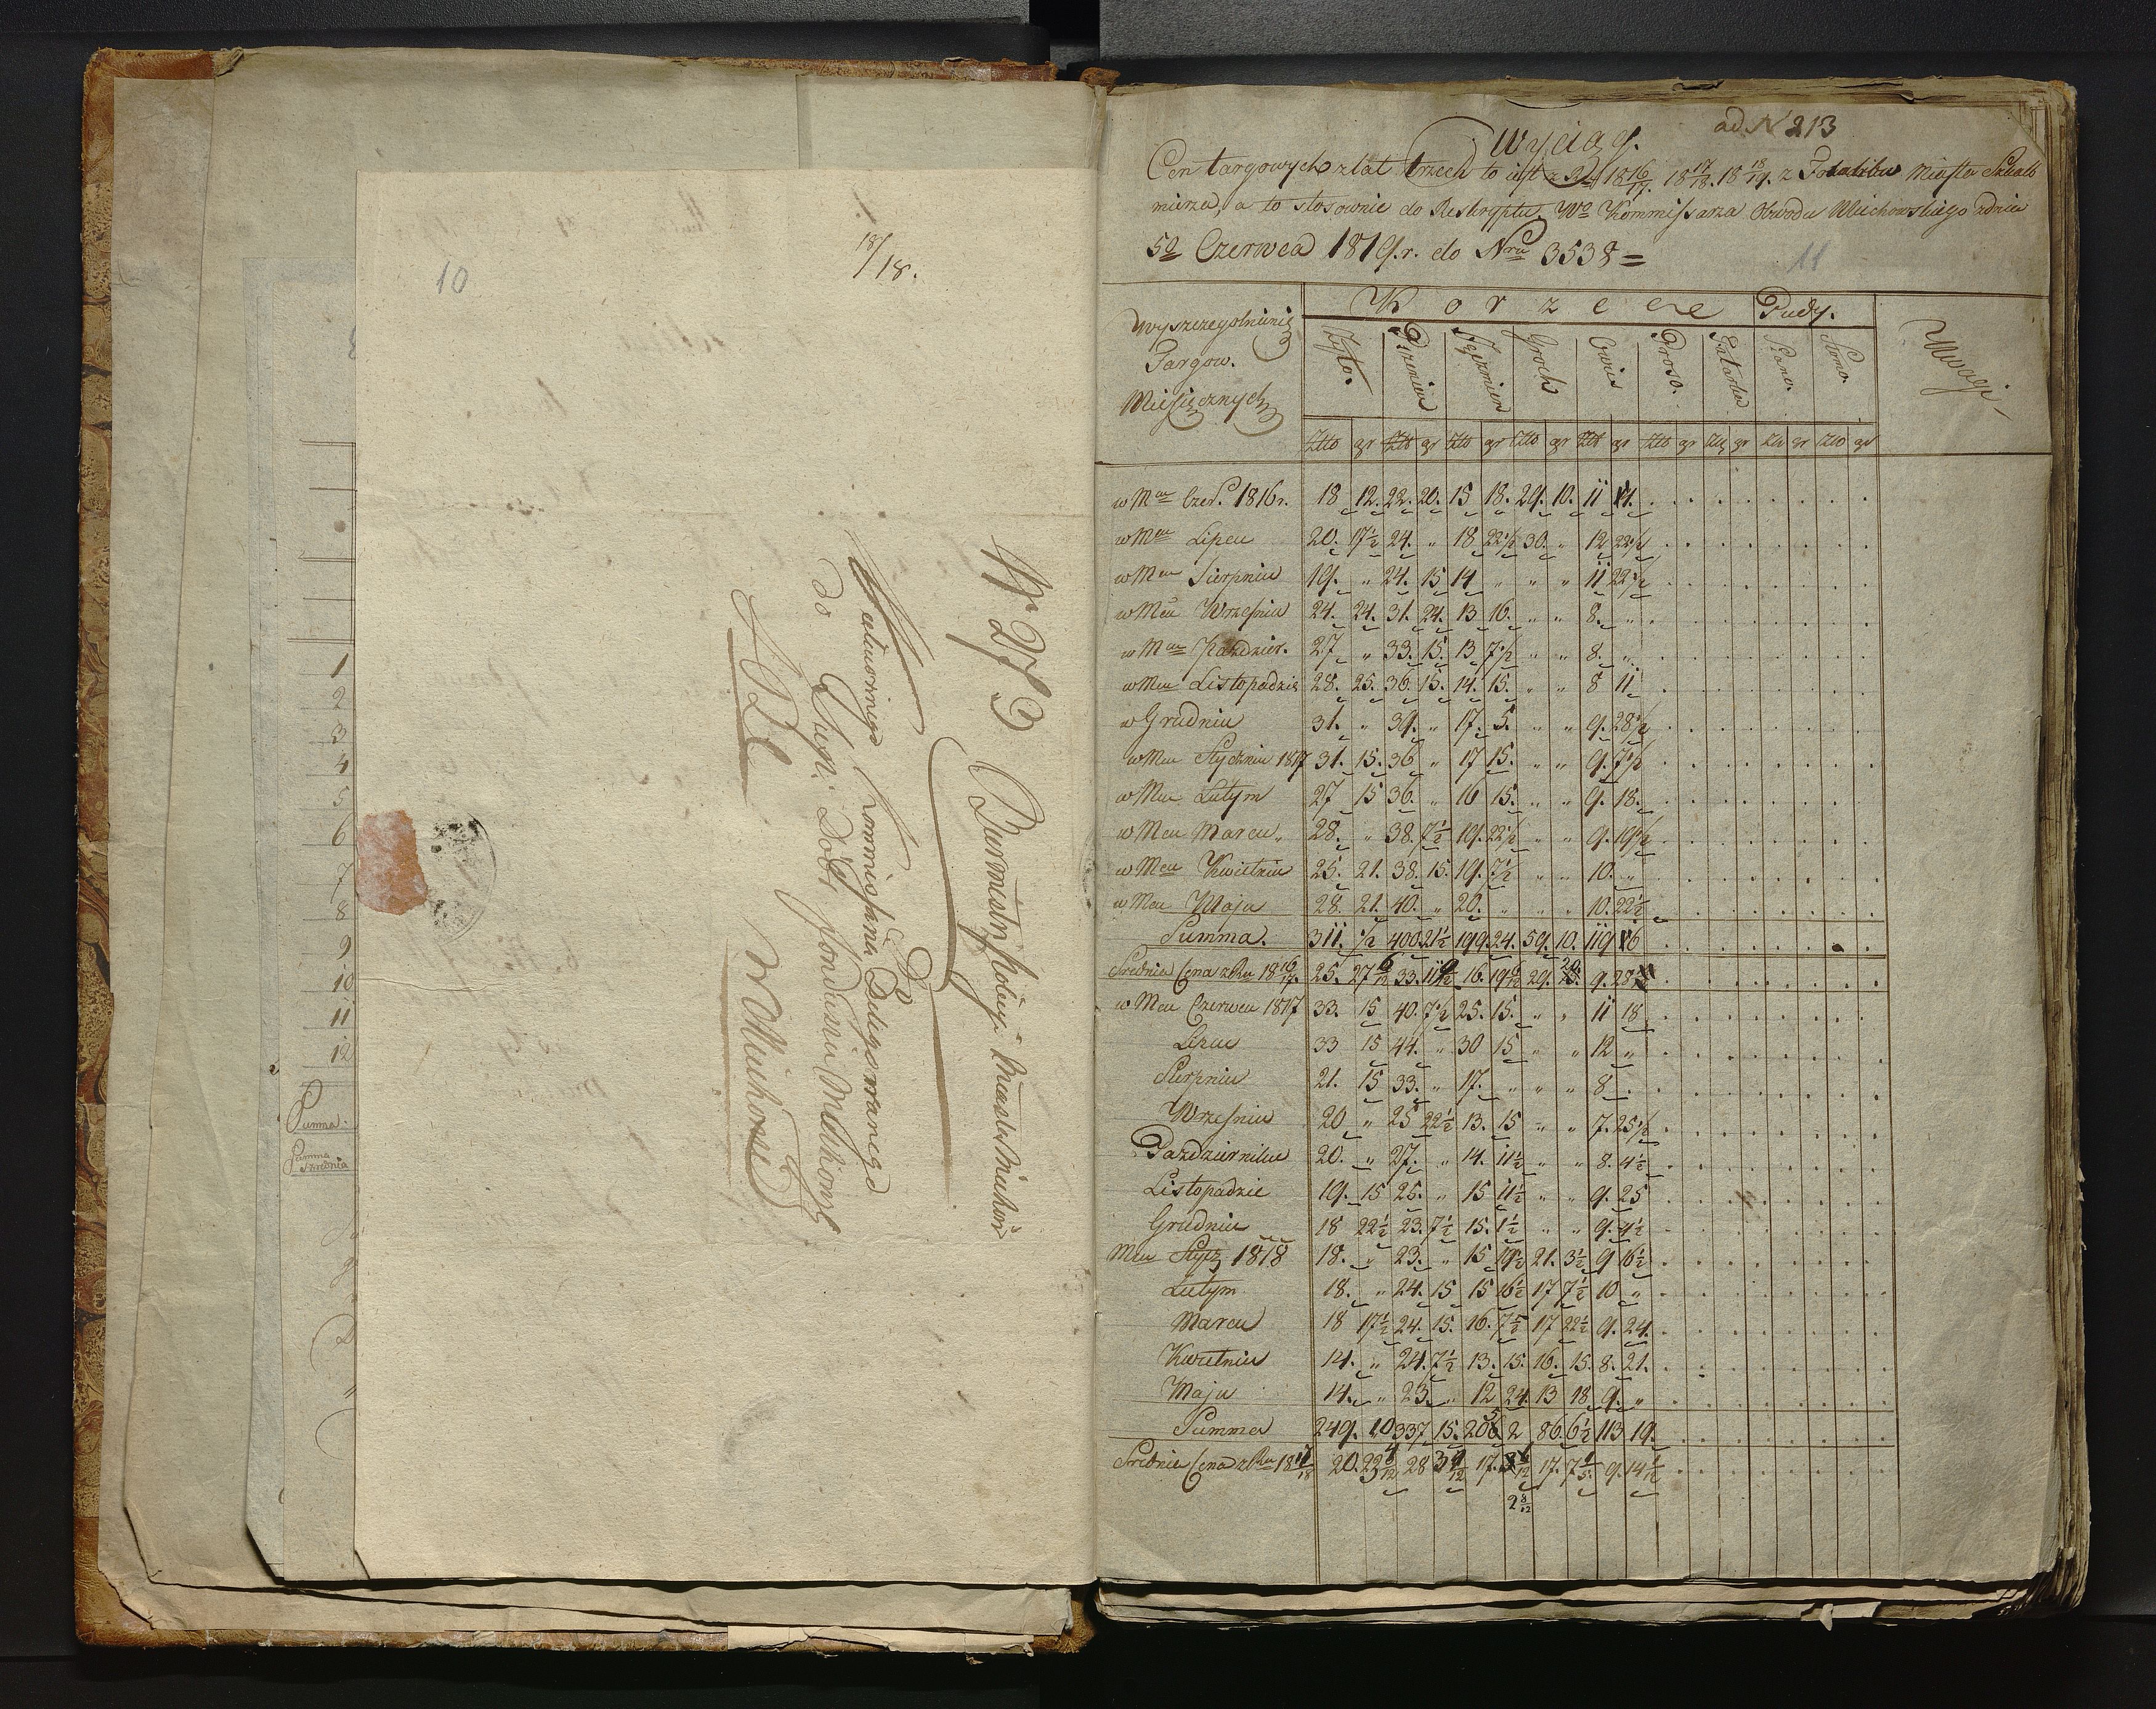 10
18/18.
Nr 273 Burmistrz stołecz: Miasta Miechów
Do
Kommissarza Delegowanego
do Supr: Dóbr funduszu Miechows
w Miechowie
1
2
3
4
5
6
7
8
9
10
11
12
Summa.
Summa Srzednia
ad N 213
Wyciąg.
Cen targowych z lat trzech to iest z Ru 18 16/17. 18 17/18. 18 18/19. z Protokułu Miasta Skalb
mierza, a to stosownie do Reskryptu Wo Kommissarza Obwodu Miechowskiego z dnia
5o Czerwca 1819.r. do Nru 3538 =
11
Wyszczegolnienie Targow. Miesięcznych
K o r z e c e Pudy. Uwagi
Żyto. Pszenica Jęczmien Groch Owies Proso. Tatarka Siano. Słoma.
Złto gr Złto gr Złto gr Złto gr Złto gr Złto gr Złt gr Zło gr Złto gr
w Mcu Czer. 1816r. 18 12. 22. 20. 15 18. 29. 10. 11
w Mcu Lipcu 20. 17½ 24. " 18 22½ 30. " 12 22½
w Mcu Sierpniu 19. " 24. 15 14 " " " 11 22½
w Mcu Wrzesniu 24. 24. 31. 24. 13 16. " " 8. "
w Mcu Październ. 27 " 33. 15. 13 7½ " " 8. "
w Mcu Listopadzie 28. 25. 36. 15. 14. 15. " " 8 11
w Grudniu 31. " 39. " 17. 5. " " 9. 28½
w Mcu Styczniu 1817 31. 15. 36 " 17 15. " " 9. 7½
w Mcu Lutym 27 15 36. " 16 15. " " 9. 18.
w Mcu Marcu 28. " 38. 7½ 19. 22½ " " 9. 19½
w Mcu Kwietniu 25. 21. 38. 15. 19. 7½ " " 10. "
w Mcu Maju 28. 21. 40. " 20. " " " 10. 22½
Summa. 311. ½ 400. 21½ 199. 24. 59. 10. 119 16
Srednia Cena z Ru 18 16/17. 25. 27 33. 16. 19 29. 20. 9. 28
w Mcu Czerwcu 1817 33. 15 40. 7½ 25. 15. " " 11 18
Lipcu 33 15 44. " 30 15 " " 12 "
Sierpniu 21. 15 33. " 17. " " " 8 .
Wrzesniu 20 " 25 22½ 13. 15 " " 7. 25½
Pazdzierniku 20. " 27. " 14. 11½ " " 8. 4½
Listopadzie 19. 15 25. " 15 11½ " " 9. 25
Grudniu 18 22½ 23. 7½ 15. 1½ " " 9. 4½
Mcu Stycz 1818 18. " 23. " 15 19½ 21. 3½ 9 16½
Lutym 18. " 24. 15 15 16½ 17 7½ 10 "
Marcu 18 17½ 24. 15. 16. 7½ 17 22½ 9. 24.
Kwietniu 14. " 24. 7½ 13. 15. 16. 15. 8. 21.
Maju 14. " 23. " 12 24. 13 18. 9. "
Summa 249. 10 337. 15. 205 2 86. 6½ 113 19.
Srednia Cena z Ru 18 17/18 20. 28 17. 17. 7 1/5. 9. 14
2 8/12